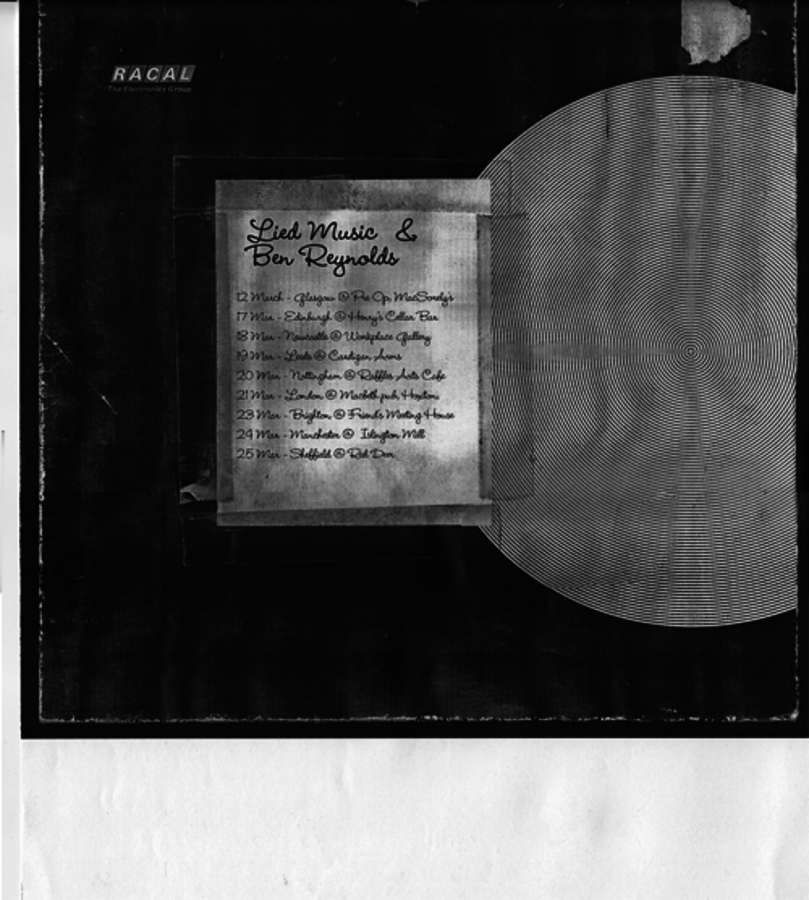 RACAL
The Electronics Group
Lied Music &
Ben Reynolds
12 March - Glasgow @ Pre Op, MacSorely's
17 Mar - Edinburgh @ Henry's Cellar Bar
18 Mar - Newcastle @ Workplace Gallery
19 Mar - Leeds @ Cardigan Arms
20 Mar - Nottingham @ Raffles Arts Cafe
21 Mar - London @ Macbeth pub, Hoxton
23 Mar - Brighton @ Friend's Meeting House
24 Mar - Manchester @ Islington Mill
25 Mar - Sheffield @ Red Deer